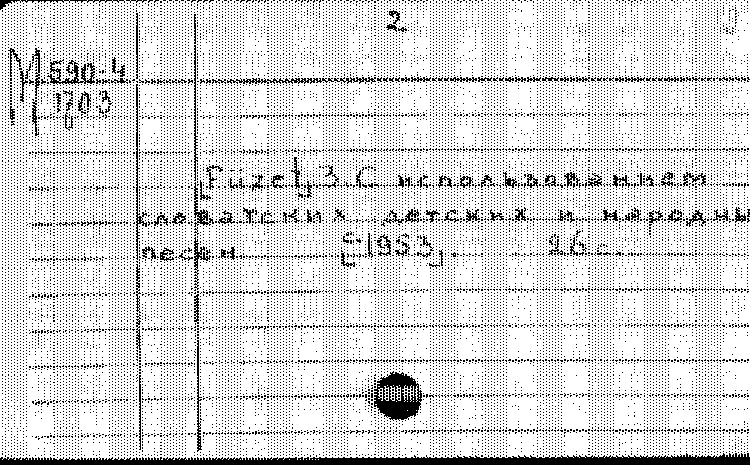 2.
М 590-4
1703
[Füzet] 3. С использованием
словатских детских и народны
песен [с. 1953]. 26 с.